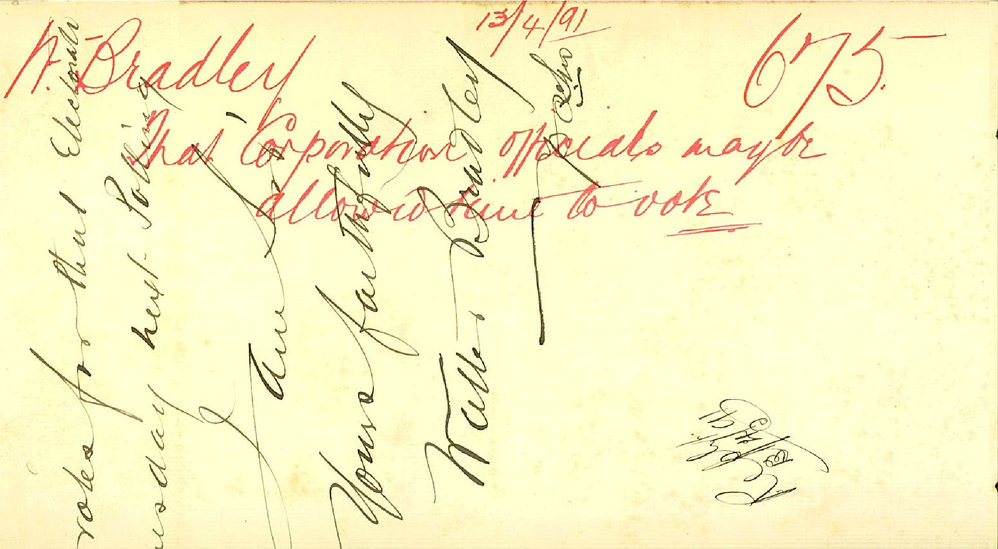 13/4/91
W. Bradley
675.
That Corporation officials maybe
allowed time to vote
votes for that Electorate
next Polling
I am Sir
Yours faithfully
Walter Bradley